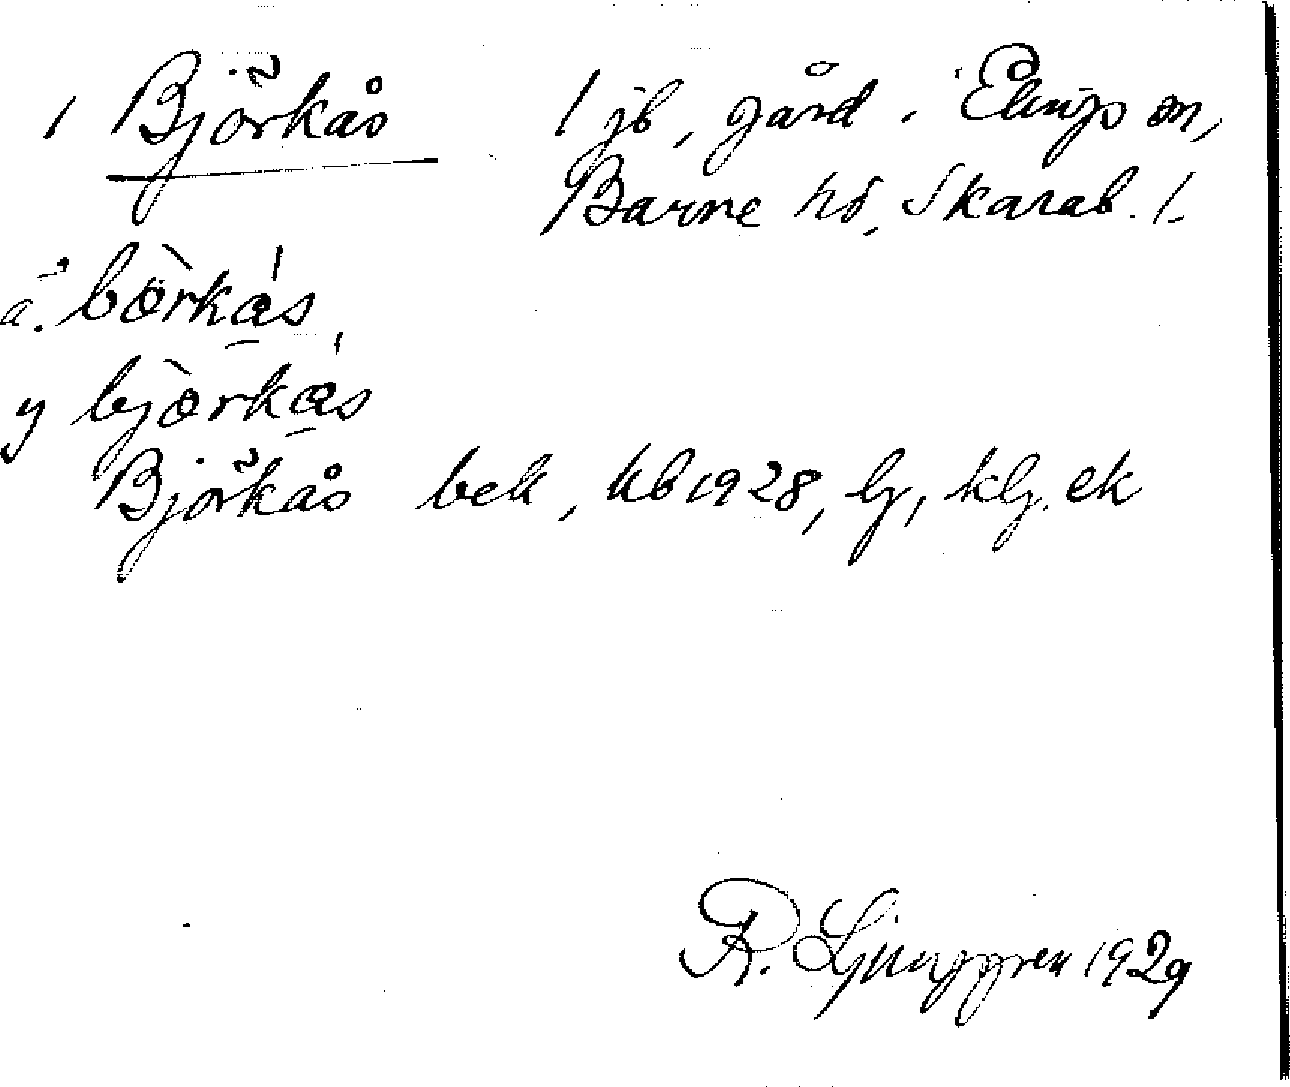 1 Björkås 1 jb, gård i Elings sn,
Barne hd, Skarab. l.
ä. bœ̀rkás
y bjœ̀rkás
Björkås bek, kb 1928, lg, klg. ek
R. Ljunggren 1929